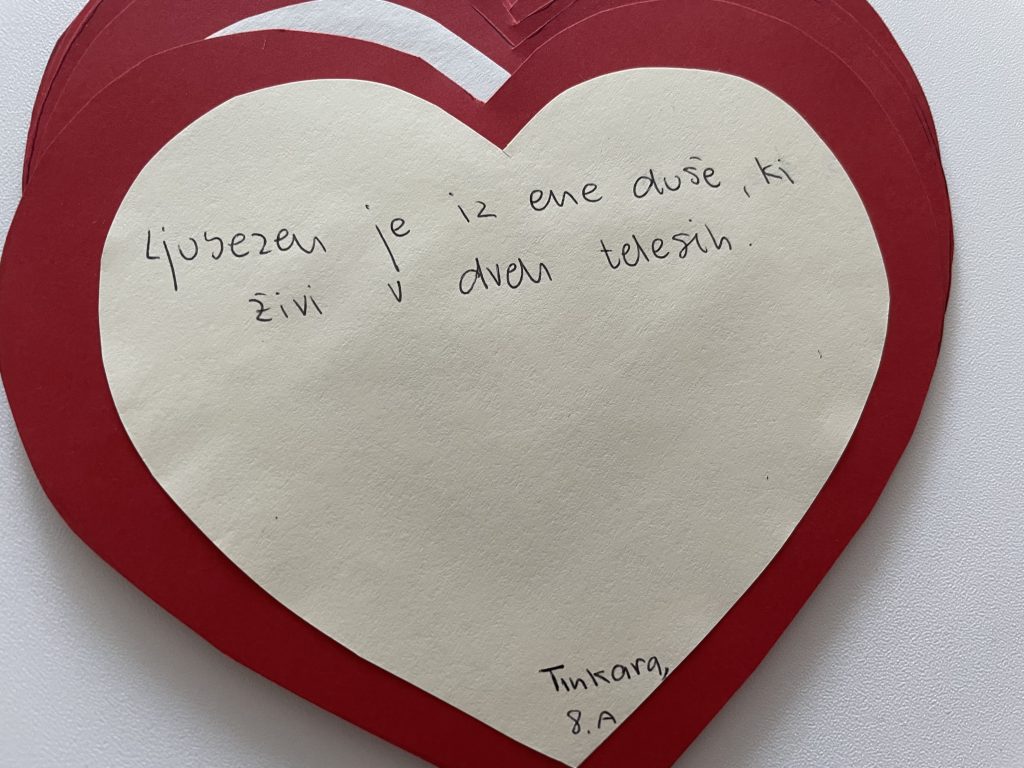 Ljubezen je iz ene duše, ki
živi v dveh telesih.
Tinkara,
8. A